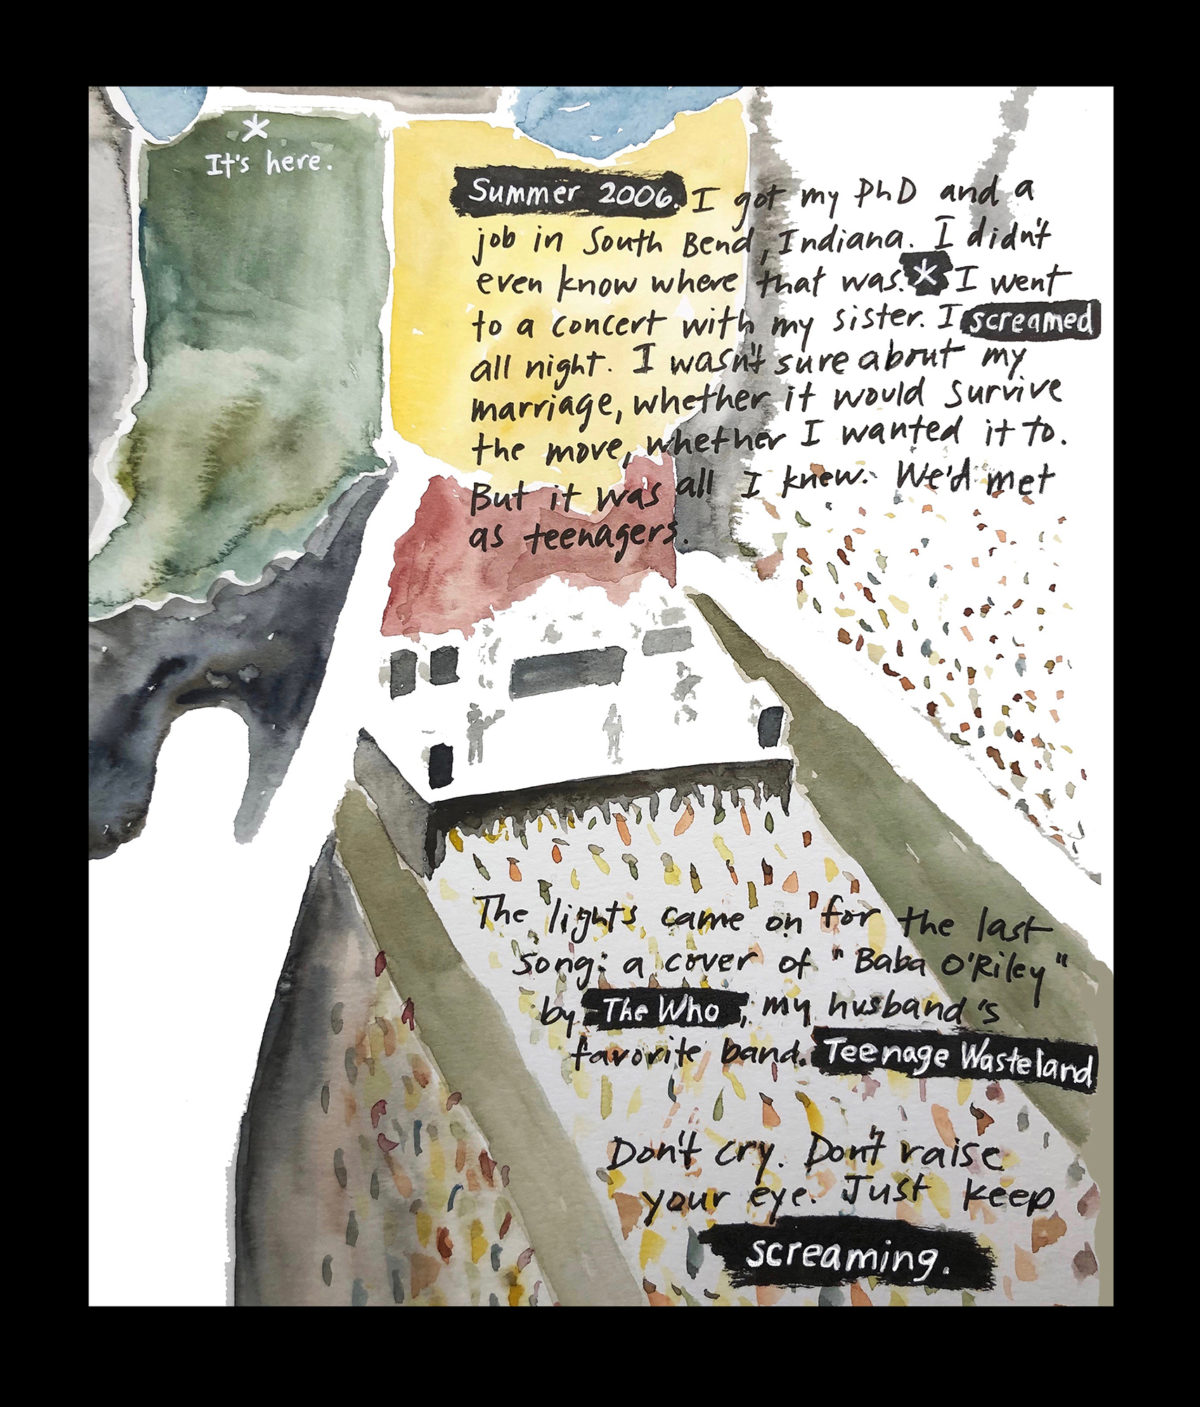 *
It's here.
Summer 2006. I got my PhD and a
job in South Bend, Indiana. I didn't
even know where that was.* I went
to a concert with my sister. I screamed
all night. I wasn't sure about my
marriage, whether it would survive
the move, whether I wanted it to.
But it was all I knew. We'd met
as teenagers.
The lights came on for the last
song: a cover of "Baba O'Riley"
by The Who, my husband's
favorite band. Teenage Wasteland
Don't cry. Don't raise
your eye. Just keep
screaming.